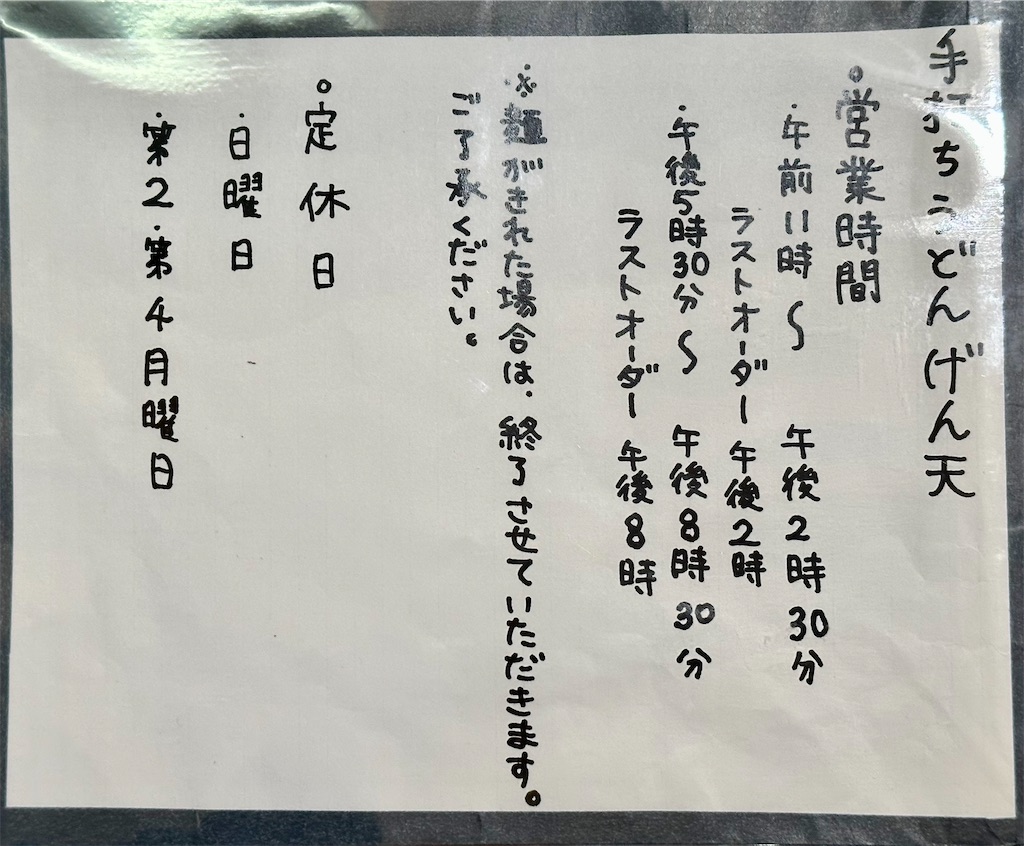 手打ちうどんげん天
○営業時間
・午前11時〜 午後2時30分
ラストオーダー午後2時
・午後5時30分〜 午後8時30分
ラストオーダー 午後8時
※麺がきれた場合は、終了させていただきます。
ご了承ください。
○定休日
・日曜日
・第2・第4月曜日